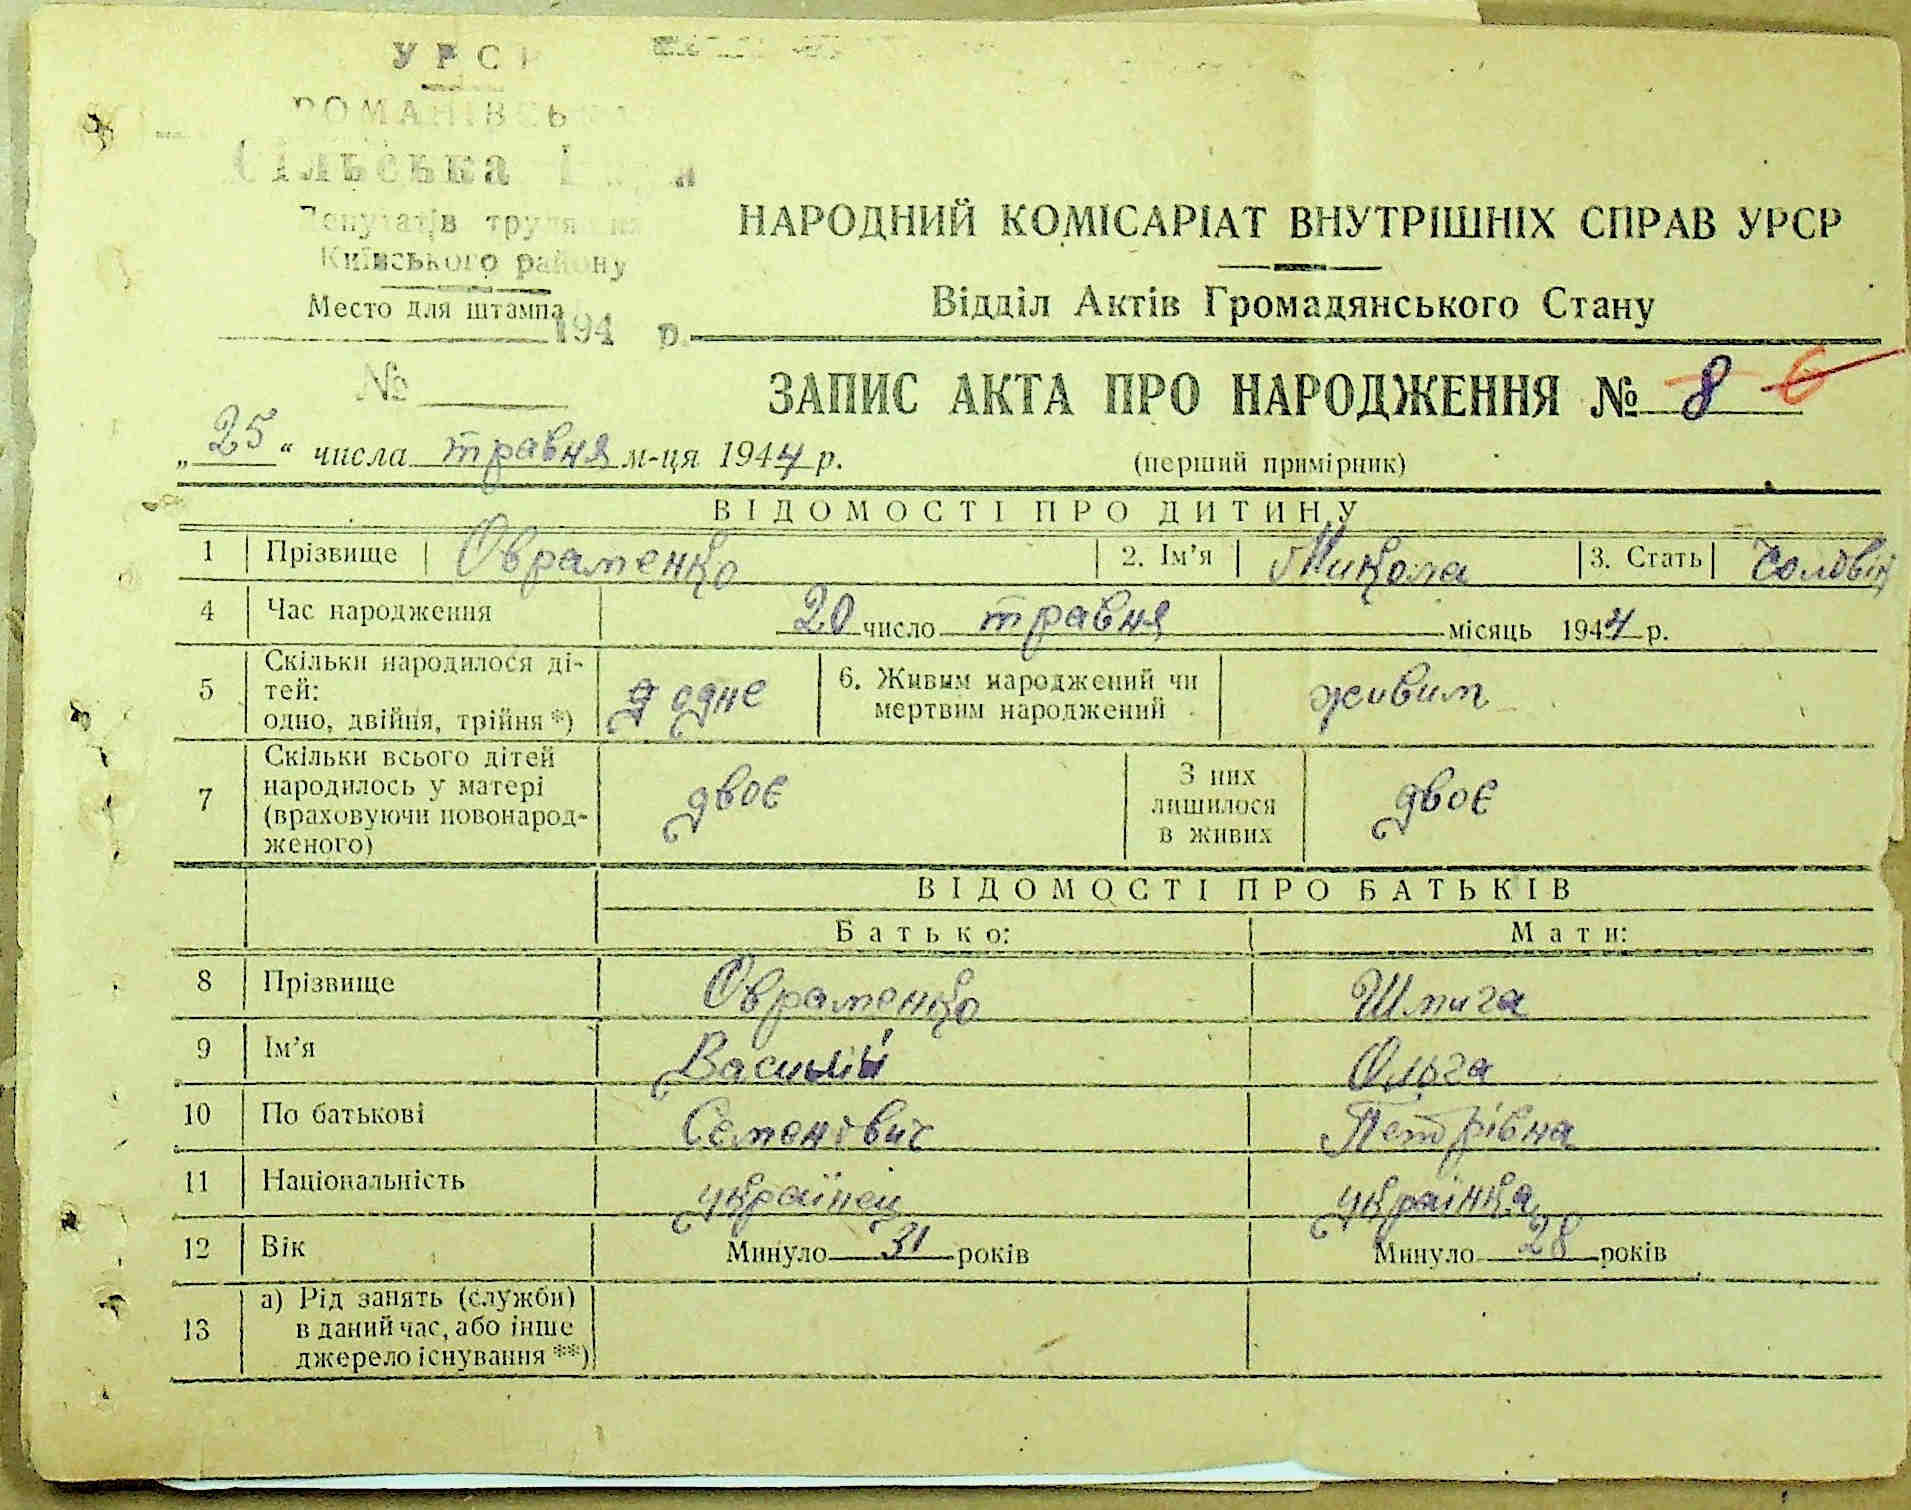 УРСР
РОМАНІВСЬКА
Сільська
Депутатів трудящих
Київського району
Место для штампа
194 р.
№
НАРОДНИЙ КОМІСАРІАТ ВНУТРІШНІХ СПРАВ УРСР
Відділ Актів Громадянського Стану
ЗАПИС АКТА ПРО НАРОДЖЕННЯ № 8 6
„25“ числа травня м-ця 1944 р. (перший примірник)
ВІДОМОСТІ ПРО ДИТИНУ
1 Прізвище Овраменко 2. Ім'я Микола 3. Стать Чоловік
4 Час народження 20 число травня місяць 1944 р.
5 Скільки народилося дітей: одно, двійня, трійня *) одне 6. Живим народжений чи мертвим народжений живим
7 Скільки всього дітей народилось у матері (враховуючи новонародженого) двоє З них лишилося в живих двоє
ВІДОМОСТІ ПРО БАТЬКІВ
Батько: Мати:
8 Прізвище Овраменко Шпига
9 Ім'я Василій Ольга
10 По батькові Семенович Петрівна
11 Національність українець українка
12 Вік Минуло 31 років Минуло 28 років
13 а) Рід занять (служби) в даний час, або інше джерело існування **)